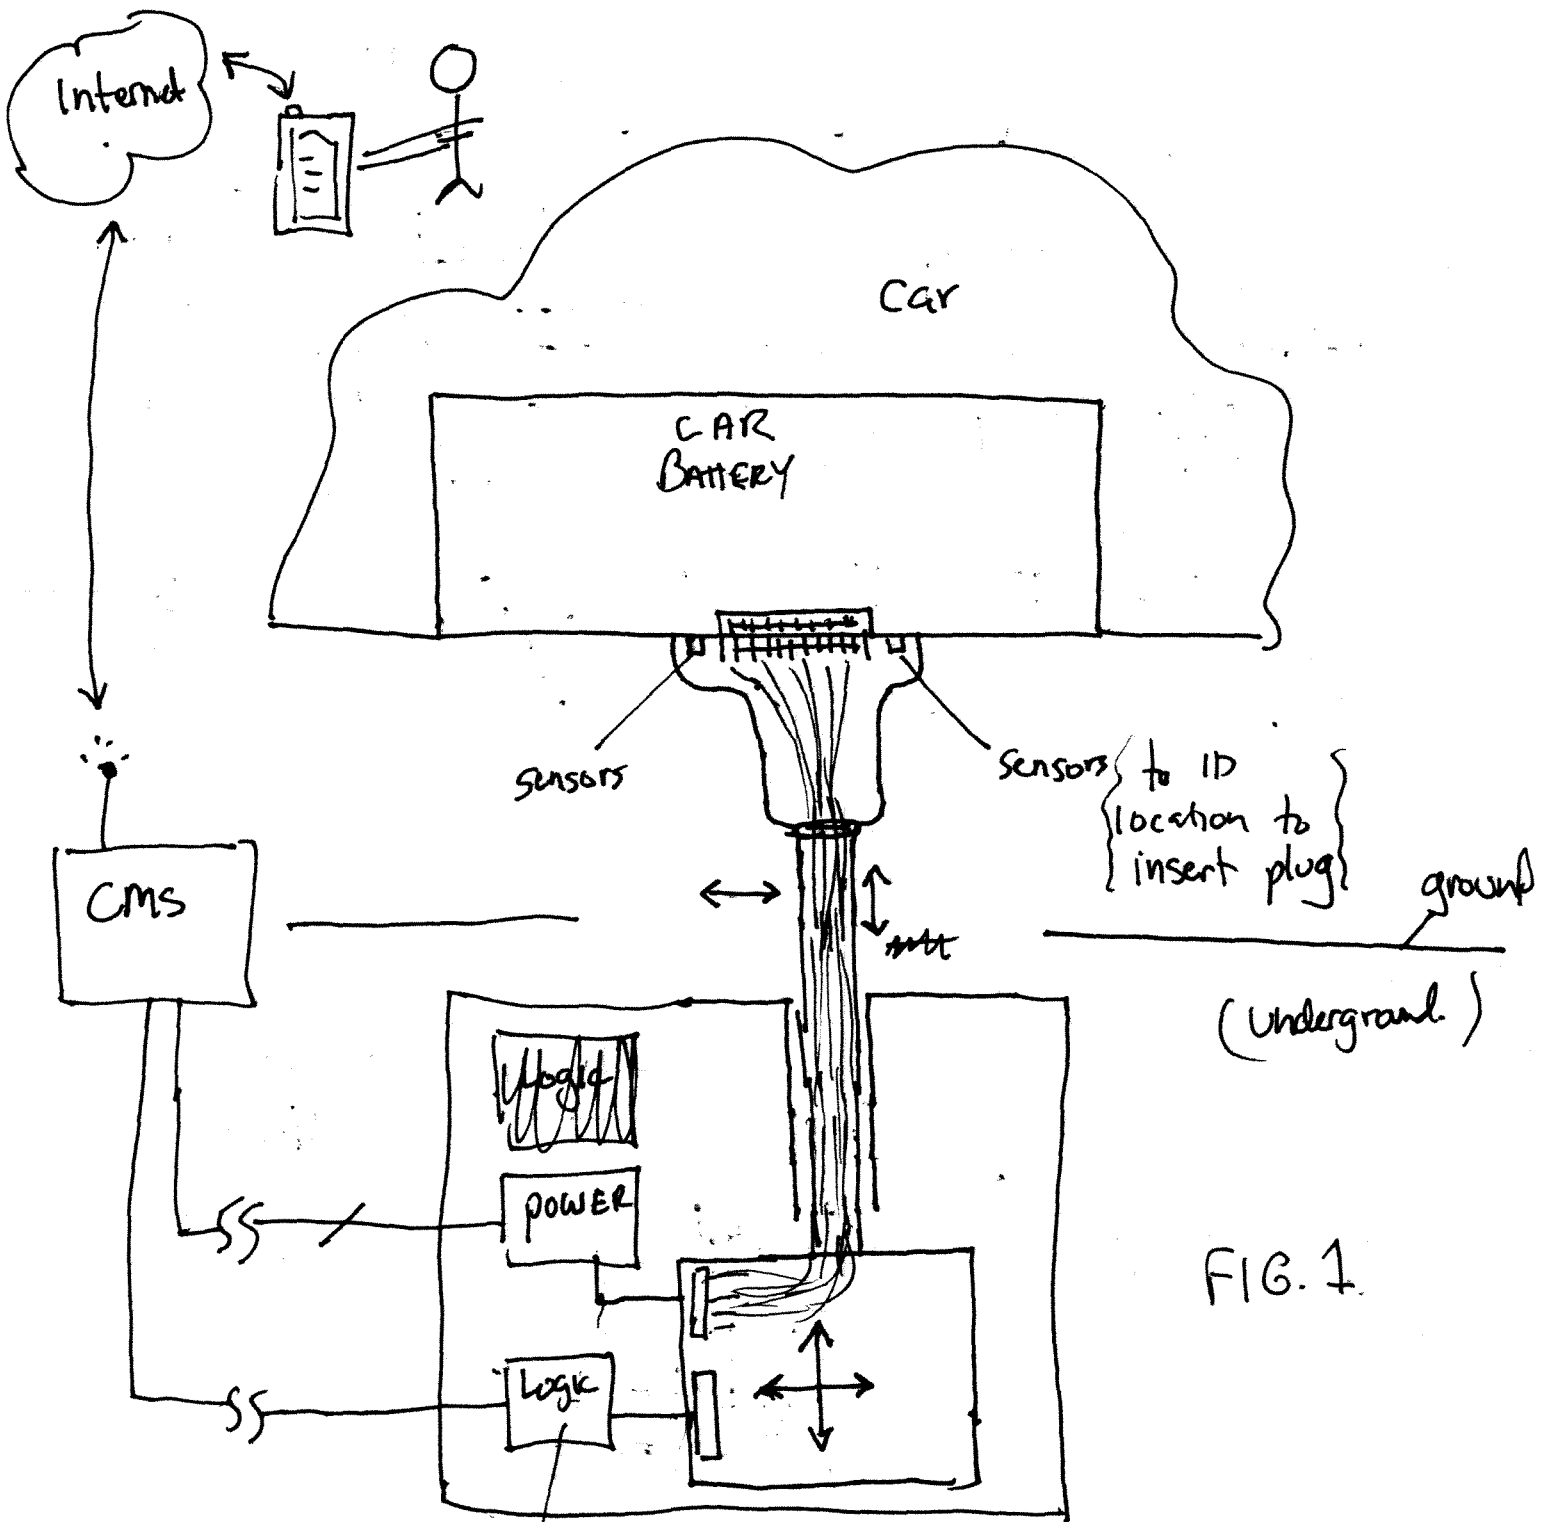 Internet
Car
CAR
BATTERY
sensors
sensors { to ID
location to
insert plug }
ground
(underground)
CMS
Logic
POWER
Logic
FIG. 1